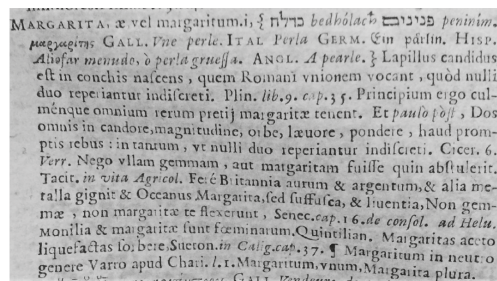 MARGARITA, æ vel margaritum.i, { כדלח bedhólach פנינים peninim.
μαργαρίτης GALL. Vne perle. ITAL Perla GERM. Ein pärlin. HISP.
Aliofar menudo, ò perla gruessa. ANGL. A pearle. } Lapillus candidus
est in conchis nascens, quem Romani vnionem vocant, quòd nulli
duo reperiantur indiscreti. Plin. lib. 9. cap. 35. Principium ergo cul-
ménque omnium rerum pretij margaritæ tenent. Et paulo pòst, Dos
omnis in candore, magnitudine, orbe, læuore, pondere, haud prom-
ptis rebus: in tantum, vt nulli duo reperiantur indiscreti. Cicer. 6.
Verr. Nego vllam gemmam, aut margaritam fuisse quin abstulerit.
Tacit. in vita Agricol. Feré Britannia aurum & argentum, & alia me-
talla gignit & Oceanus Margarita, sed suffusca, & liuentia, Non gem-
mæ, non margaritæ te flexerunt, Senec. cap. 16. de consol. ad Helu.
Monilia & margaritæ sunt fœminarum. Quintilian. Margaritas aceto
liquefactas sorbere, Sueton. in Calig. cap. 37. ¶ Margaritum in neutro
genere Varro apud Chari. l. 1. Margaritum, vnum, Margarita plura.